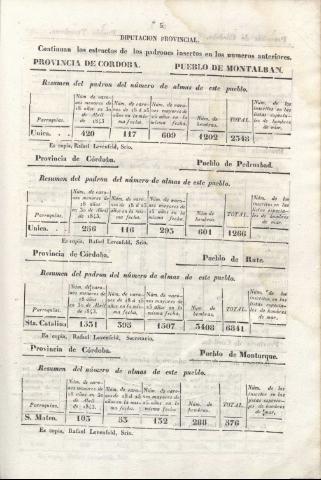 5
DIPUTACION PROVINCIAL.
Continuan los estractos de los padrones insertos en los numeros anteriores.
PROVINCIA DE CORDOBA. PUEBLO DE MONTALBAN.
Resumen del padron del número de almas de este pueblo.
Parroquias. Núm. de varones menores de 18 años en 30 de Abril de 1843 Núm. de varones de 18 á 25 años en la misma fecha. Núm. de varones mayores de 25 años en la misma fecha. Núm. de hembras. TOTAL. Núm. de los inscritos en las listas especiales de hombres de mar.
Unica. . 420 117 609 1202 2348
Es copia, Rafael Lovenfeld, Srio.
Provincia de Córdoba. Pueblo de Pedroabad.
Resumen del padron del número de almas de este pueblo.
Parroquias. Núm. de varones menores de 18 años en 30 de Abril de 1843. Núm. de varones de 18 á 25 años en la misma fecha. Núm. de varones mayores de 25 años en la misma fecha. Núm. de hembras. TOTAL. Núm. de los inscritos en las listas especiales de hombres de mar.
Unica. . 256 116 293 601 1266
Es copia, Rafael Lovenfeld, Srio.
Provincia de Córdoba. Pueblo de Rute.
Resumen del padron del número de almas de este pueblo.
Parroquias. Núm. de varones menores de 18 años en 30 de Abril de 1843. Núm. de varones de 18 á 25 años en la misma fecha. Núm. de varones mayores de 25 años en la misma fecha. Núm. de hembras. TOTAL. Núm. de los inscritos en las listas especiales de hombres de mar.
Sta. Catalina 1531 395 1507 3408 6841
Es copia, Rafael Lovenfeld, Secretario.
Provincia de Córdoba. Pueblo de Monturque.
Resumen del número de almas de este pueblo.
Parroquias. Núm. de varones menores de 18 años en 30 de Abril de 1843. Núm. de varones de 18 á 25 años en la misma fecha. Núm. de varones mayores de 25 años en la misma fecha Núm. de hembras. TOTAL. Núm. de los inscritos en las listas especiales de hombres de mar.
S. Mateo. 103 53 132 288 576
Es copia, Rafael Lovenfeld, Srio.